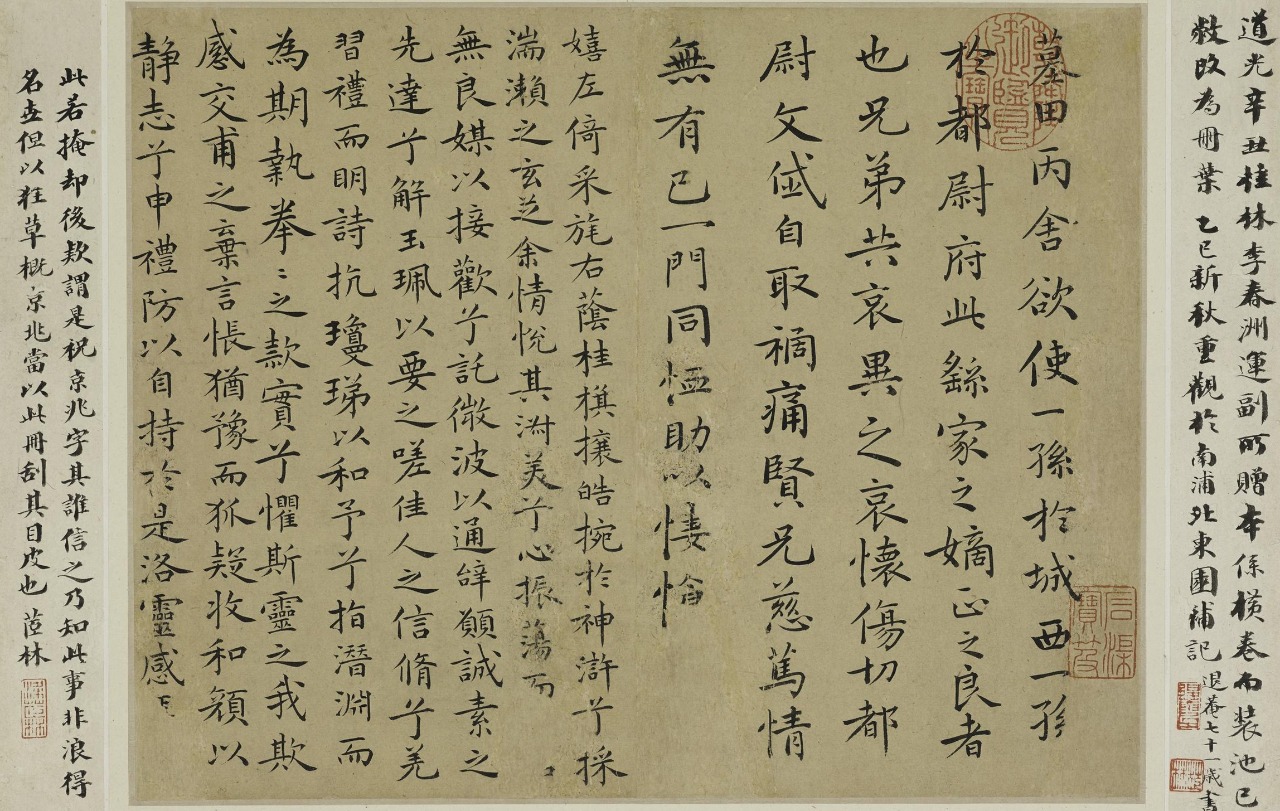 道光辛丑桂林李春洲運副所贈本係橫卷而裝池已
敝改為冊葉 乙巳新秋重觀於南浦北東園補記
退菴七十一歲書
墓田丙舍欲使一孫於城西一孫
於都尉府此繇家之嫡正之良者
也兄弟共哀異之哀懷傷切都
尉文岱自取禍痛賢兄慈篤情
無有已一門同恤助以悽愴
嬉左倚采旄右蔭桂棋攘皓捥於神滸兮採
湍瀨之玄芝余情悅其淑美兮心振蕩而
無良媒以接歡兮託微波以通辭願誠素之
先達兮解玉珮以要之嗟佳人之信脩兮羌
習禮而明詩抗瓊珶以和予兮指潛淵而
為期執拳〻之款實兮懼斯靈之我欺
感交甫之棄言悵猶豫而狐疑收和顏以
靜志兮申禮防以自持於是洛靈感
此若掩却後款謂是祝京兆字其誰信之乃知此事非浪得
名世但以狂草概京兆當以此冊刮其目皮也 茝林
石渠寶笈